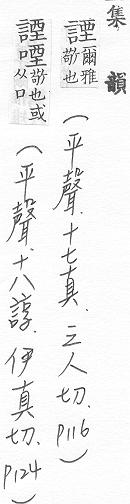 集韻
諲 爾雅敬也 (平聲、十七真、三人切、P116)
諲㖶 敬也或从口 (平聲、十八諄、伊真切、P124)